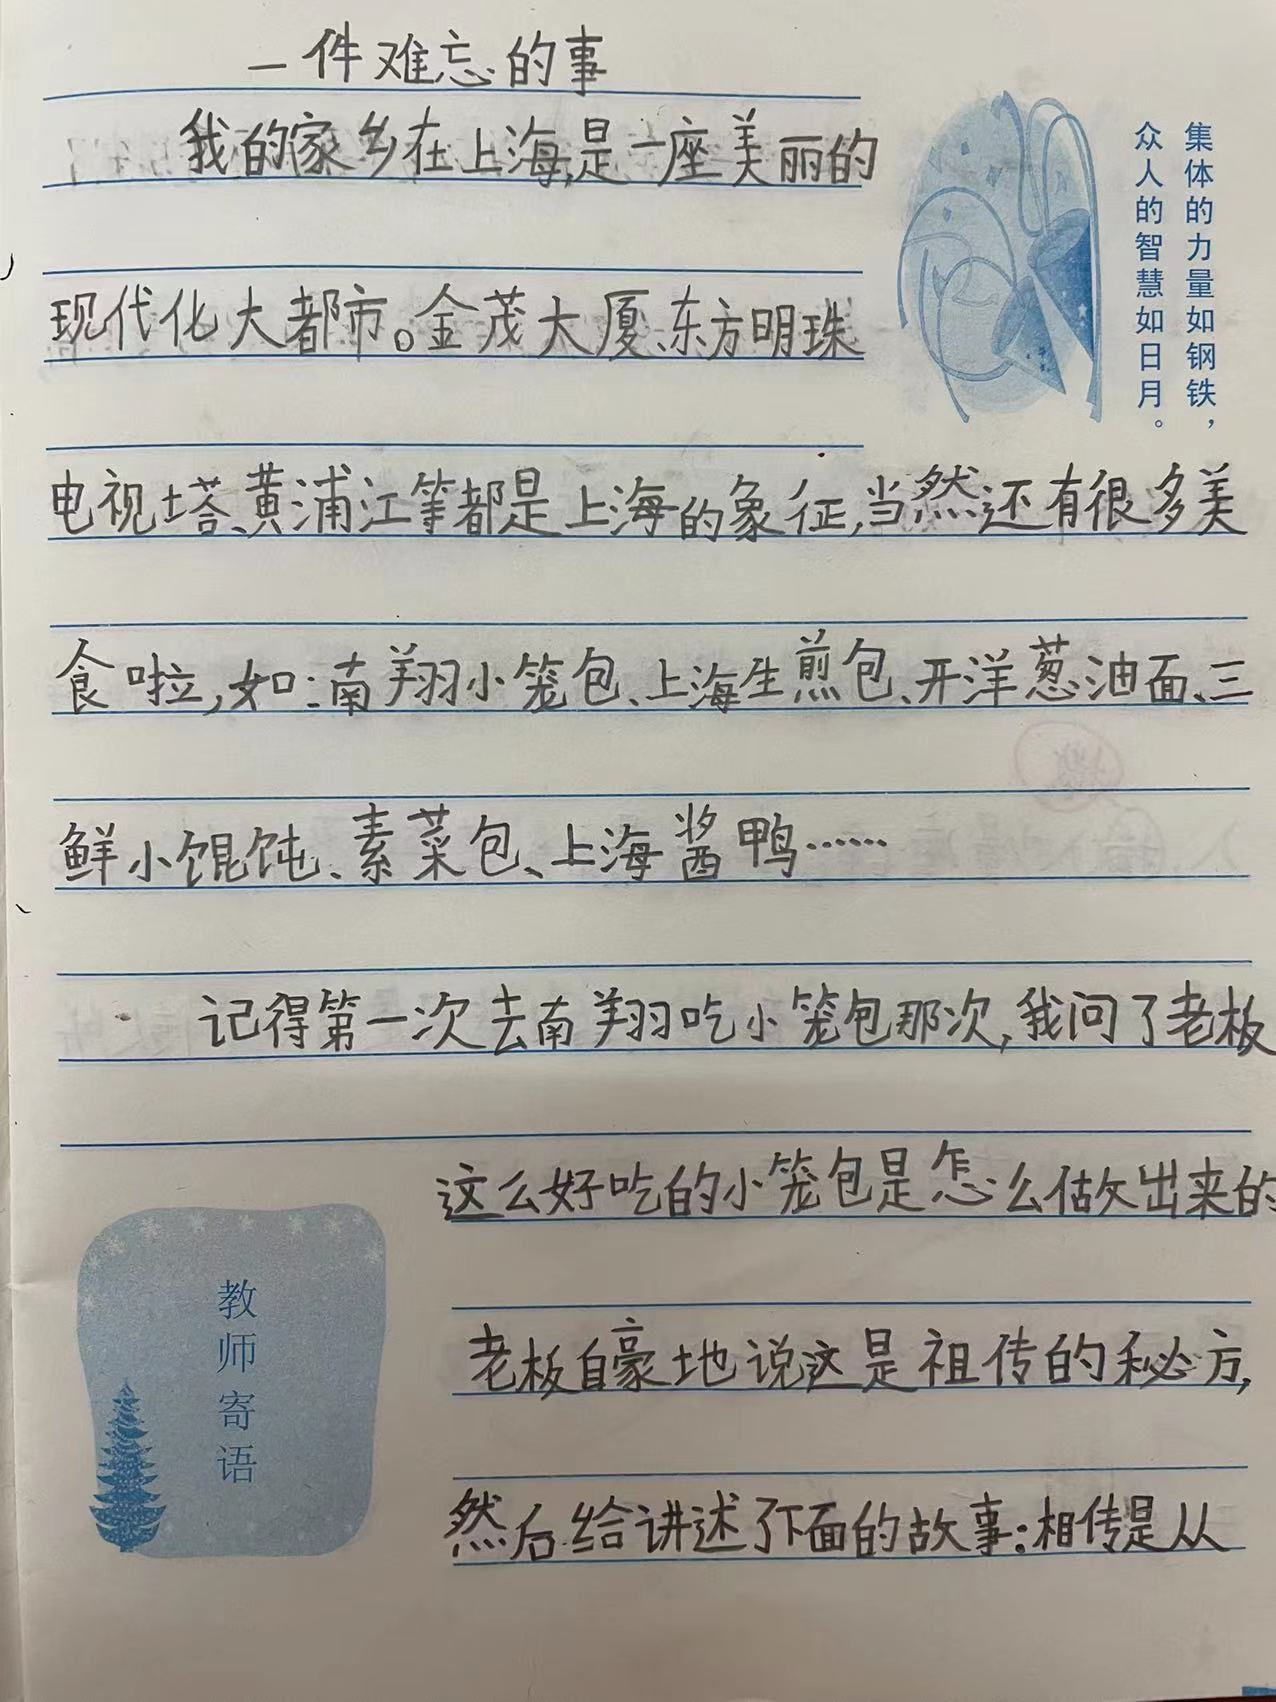 一件难忘的事
我的家乡在上海,是一座美丽的
现代化大都市。金茂大厦、东方明珠
电视塔、黄浦江等都是上海的象征,当然还有很多美
食啦,如:南翔小笼包、上海生煎包、开洋葱油面、三
鲜小馄饨、素菜包、上海酱鸭……
记得第一次去南翔吃小笼包那次,我问了老板
这么好吃的小笼包是怎么做出来的
老板自豪地说这是祖传的秘方,
然后给讲述了下面的故事:相传是从
集体的力量如钢铁,
众人的智慧如日月。
教师寄语